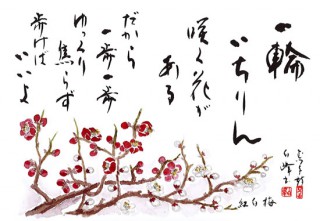 一輪
いちりん
咲く花が
ある
だから
一歩一歩
ゆっくり
焦らず
歩けば
いいよ
紅白梅